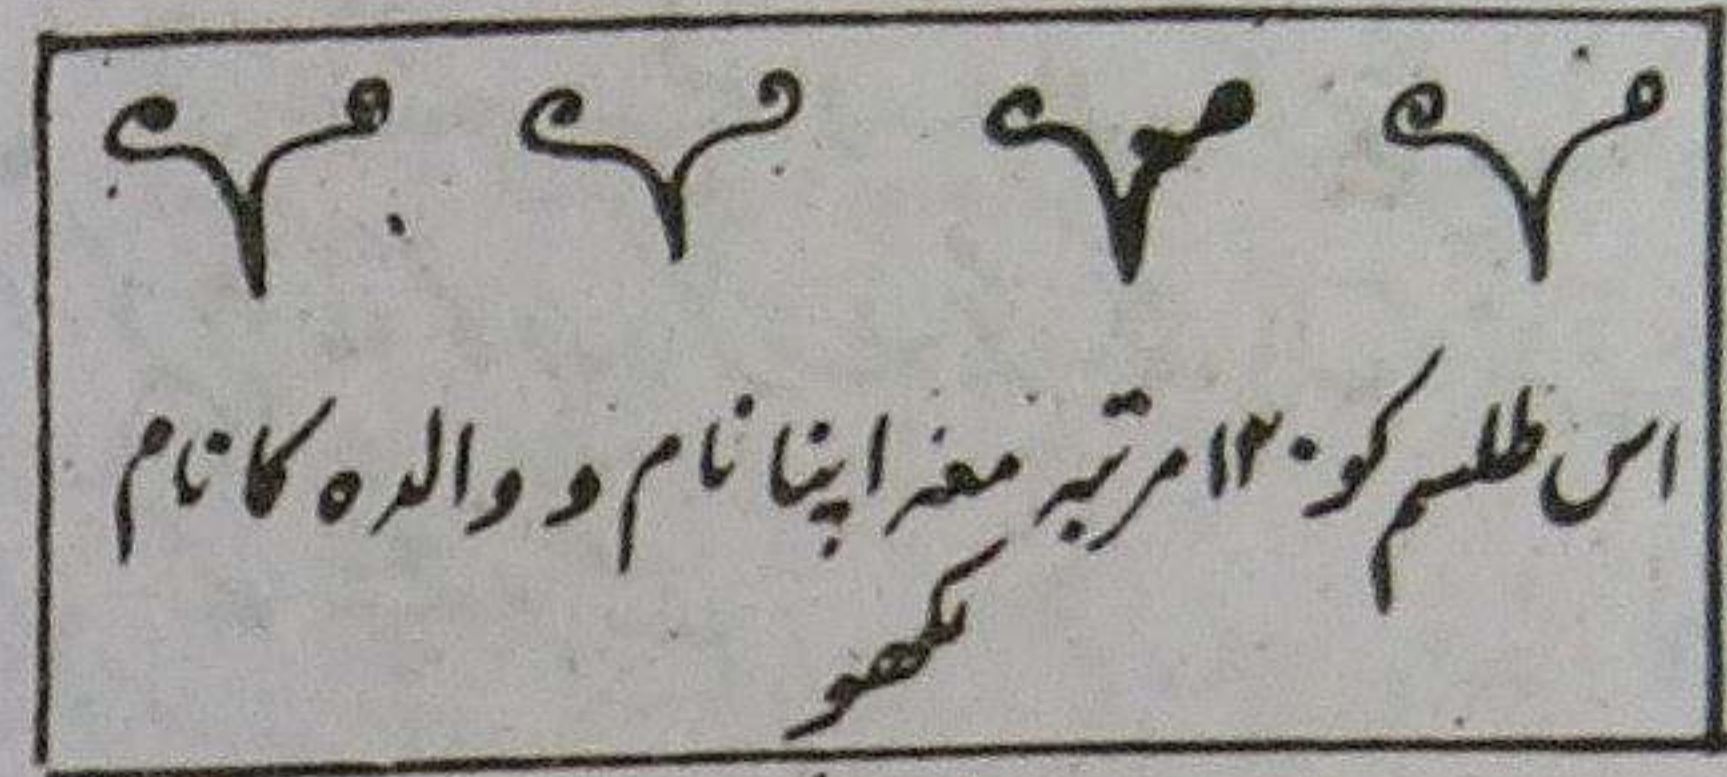 اس طلسم کو ۱۲۰ مرتبہ معہ اپنا نام و والدہ کا نام
لکھو